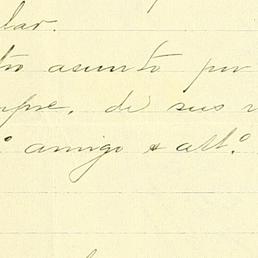 lar.
tro asunto por
mpre, de sus
º amigo & att.º